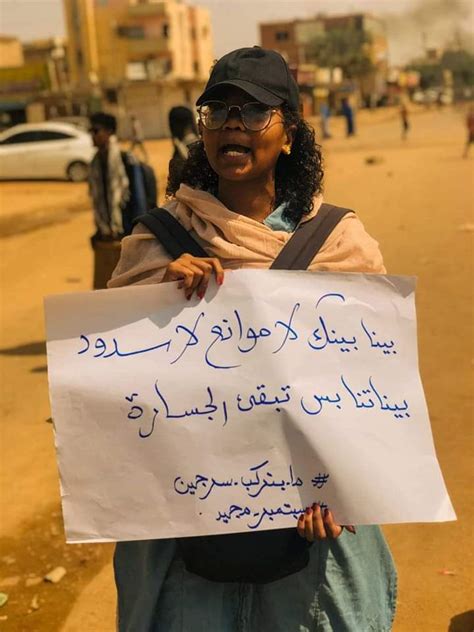 بينا بينك لا موانع لا سدود
بيناتنا بس تبقى الجسارة
# ما_بتركب_سرجين
# سبتمبر_مجيد